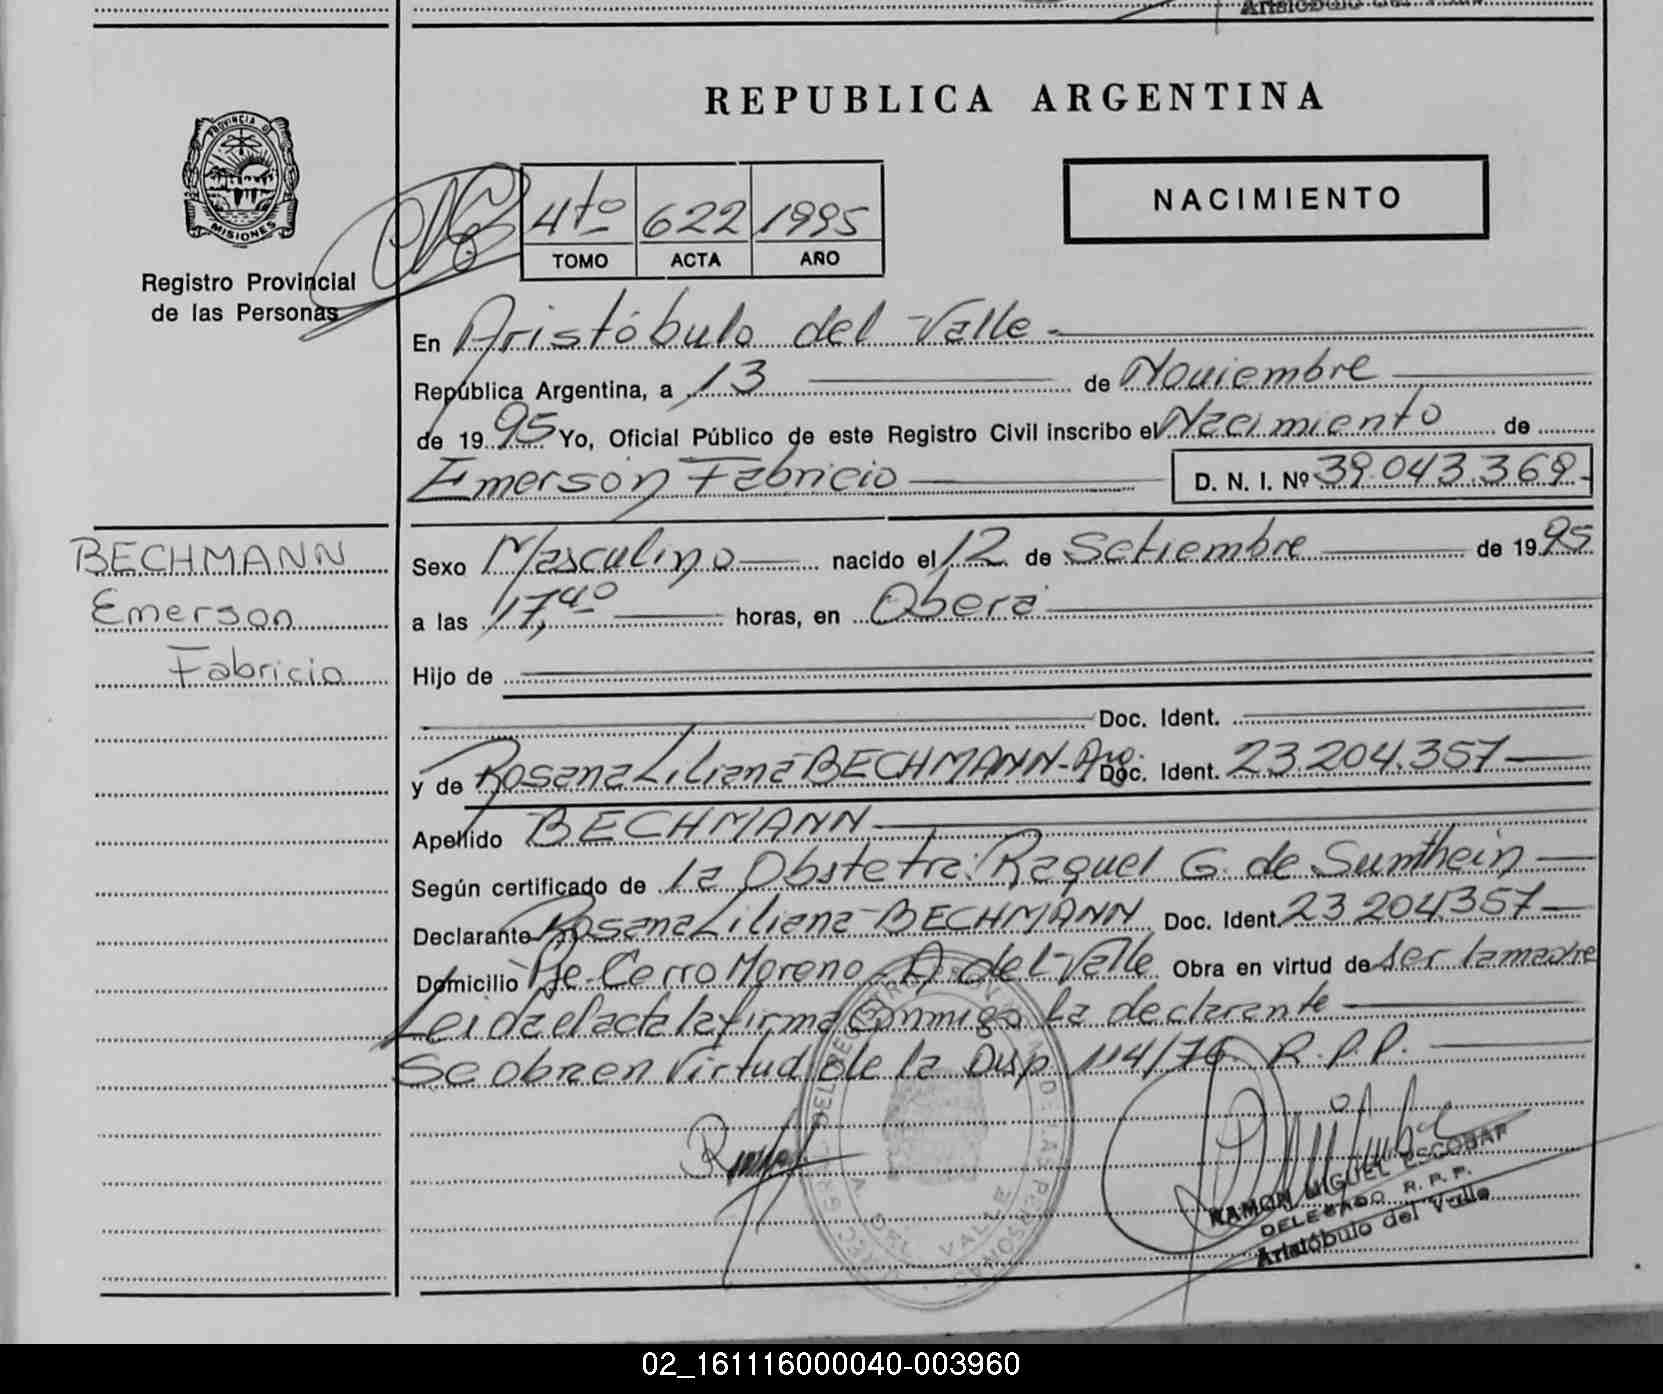 REPUBLICA ARGENTINA
PROVINCIA DE
MISIONES
Registro Provincial
de las Personas
4to 622 1995
TOMO ACTA AÑO
NACIMIENTO
En Aristóbulo del Valle-
República Argentina, a 13 de Noviembre
de 1995 Yo, Oficial Público de este Registro Civil inscribo el Nacimiento de
Emerson Fabricio D. N. I. Nº 39.043.369-
BECHMANN
Emerson
Fabricio
Sexo Masculino nacido el 12 de Setiembre de 1995
a las 17,40 horas, en Oberá
Hijo de
Doc. Ident.
y de Rosana Liliana BECHMANN-Arg. Doc. Ident. 23.204.357
Apellido BECHMANN
Según certificado de la Obstetra: Raquel G. de Sumthein
Declarante Rosana Liliana BECHMANN Doc. Ident. 23.204.357
Domicilio Pje. Cerro Moreno - A. del Valle Obra en virtud de ser la madre
Leida el acta la firma conmigo la declarante
Se obra en virtud de la Disp. 114/76 R.P.P.
RAMON MIGUEL ESCOBAR
DELEGADO R. P. P.
Aristóbulo del Valle
02_161116000040-003960